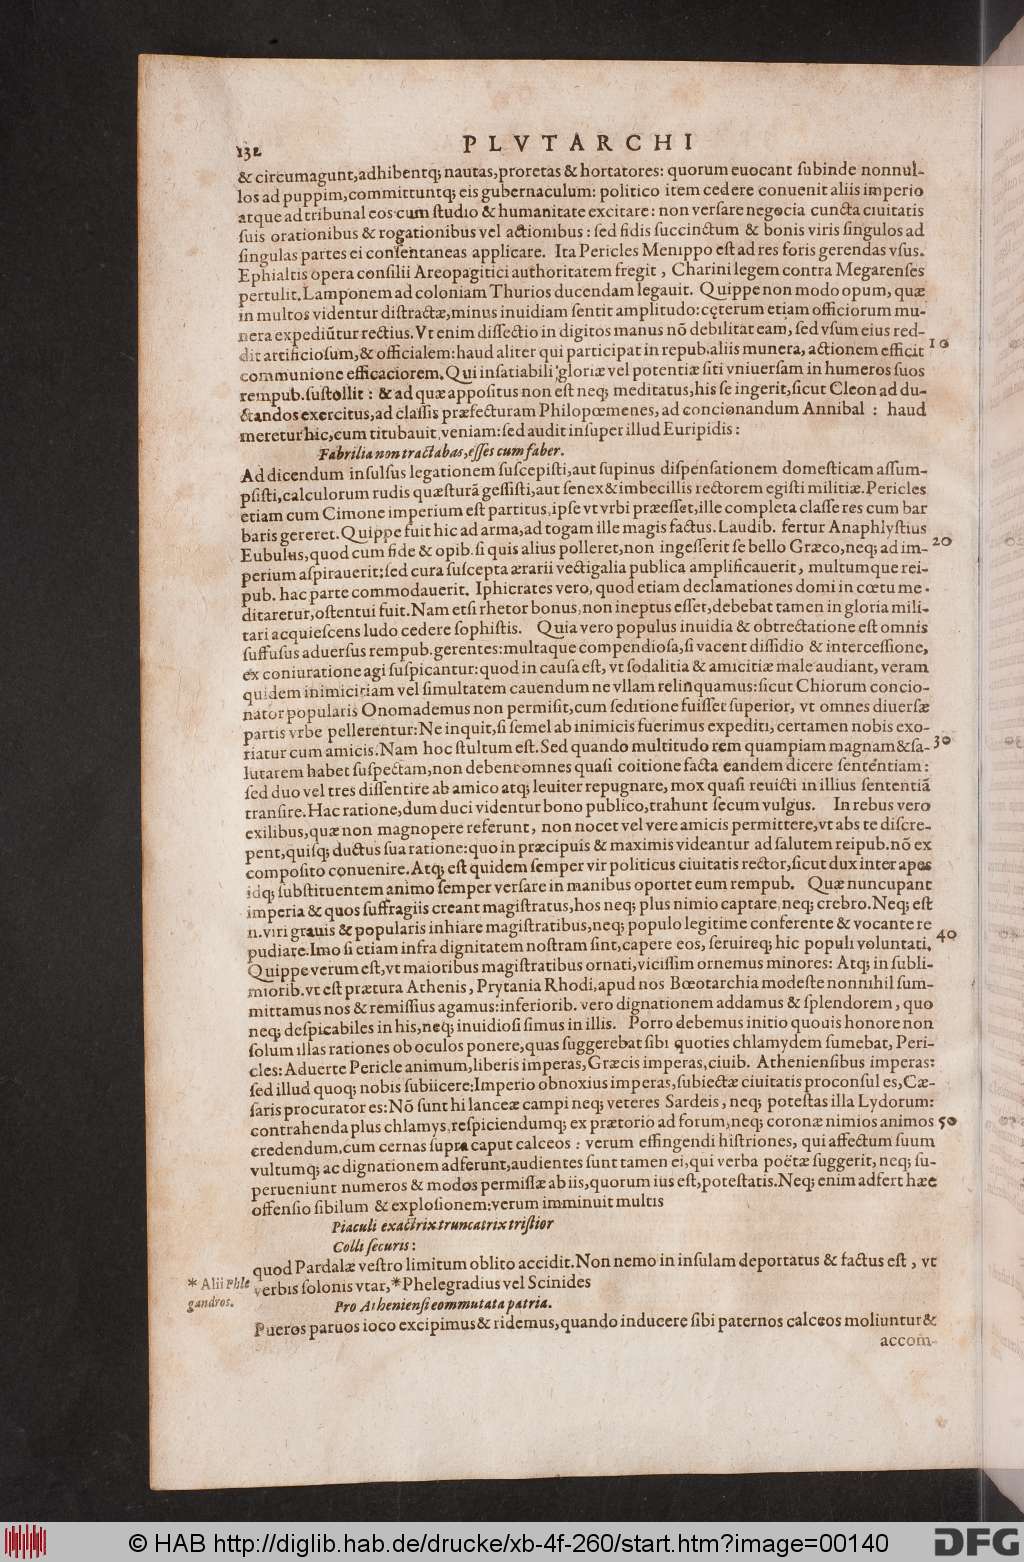 132
PLVTARCHI
& circumagunt, adhibentq; nautas, proretas & hortatores: quorum euocant subinde nonnul-
los ad puppim, committuntq; eis gubernaculum: politico item cedere conuenit aliis imperio
atque ad tribunal eos cum studio & humanitate excitare: non versare negocia cuncta ciuitatis
suis orationibus & rogationibus vel actionibus: sed fidis succinctum & bonis viris singulos ad
singulas partes ei consentaneas applicare. Ita Pericles Menippo est ad res foris gerendas vsus.
Ephialtis opera consilii Areopagitici authoritatem fregit, Charini legem contra Megarenses
pertulit. Lamponem ad coloniam Thurios ducendam legauit. Quippe non modo opum, quæ
in multos videntur distractæ, minus inuidiam sentit amplitudo: cęterum etiam officiorum mu-
nera expediũtur rectius. Vt enim dissectio in digitos manus nõ debilitat eam, sed vsum eius red-
dit artificiosum, & officialem: haud aliter qui participat in repub. aliis munera, actionem efficit 10
communione efficaciorem. Qui insatiabili gloriæ vel potentiæ siti vniuersam in humeros suos
rempub. sustollit: & ad quæ appositus non est neq; meditatus, his se ingerit, sicut Cleon ad du-
ctandos exercitus, ad classis præfecturam Philopœmenes, ad concionandum Annibal: haud
meretur hic, cum titubauit, veniam: sed audit insuper illud Euripidis:
Fabrilia non tractabas, esses cum faber.
Ad dicendum insulsus legationem suscepisti, aut supinus dispensationem domesticam assum-
psisti, calculorum rudis quæsturã gessisti, aut senex & imbecillis rectorem egisti militiæ. Pericles
etiam cum Cimone imperium est partitus, ipse vt vrbi præesset, ille completa classe res cum bar
baris gereret. Quippe fuit hic ad arma, ad togam ille magis factus. Laudib. fertur Anaphlystius
Eubulus, quod cum fide & opib. si quis alius polleret, non ingesserit se bello Græco, neq; ad im- 20
perium aspirauerit: sed cura suscepta ærarii vectigalia publica amplificauerit, multumque rei-
pub. hac parte commodauerit. Iphicrates vero, quod etiam declamationes domi in cœtu me-
ditaretur, ostentui fuit. Nam etsi rhetor bonus, non ineptus esset, debebat tamen in gloria mili-
tari acquiescens ludo cedere sophistis. Quia vero populus inuidia & obtrectatione est omnis
suffusus aduersus rempub. gerentes: multaque compendiosa, si vacent dissidio & intercessione,
ex coniuratione agi suspicantur: quod in causa est, vt sodalitia & amicitiæ male audiant, veram
quidem inimicitiam vel simultatem cauendum ne vllam relinquamus: sicut Chiorum concio-
nator popularis Onomademus non permisit, cum seditione fuisset superior, vt omnes diuersæ
partis vrbe pellerentur: Ne inquit, si semel ab inimicis fuerimus expediti, certamen nobis exo-
riatur cum amicis. Nam hoc stultum est. Sed quando multitudo rem quampiam magnam & sa- 30
lutarem habet suspectam, non debent omnes quasi coitione facta eandem dicere sententiam:
sed duo vel tres dissentire ab amico atq; leuiter repugnare, mox quasi reuicti in illius sententiã
transire. Hac ratione, dum duci videntur bono publico, trahunt secum vulgus. In rebus vero
exilibus, quæ non magnopere referunt, non nocet vel vere amicis permittere, vt abs te discre-
pent, quisq; ductus sua ratione: quo in præcipuis & maximis videantur ad salutem reipub. nõ ex
composito conuenire. Atq; est quidem semper vir politicus ciuitatis rector, sicut dux inter apes
idq; substituentem animo semper versare in manibus oportet eum rempub. Quæ nuncupant
imperia & quos suffragiis creant magistratus, hos neq; plus nimio captare, neq; crebro. Neq; est
n. viri grauis & popularis inhiare magistratibus, neq; populo legitime conferente & vocante re
pudiare. Imo si etiam infra dignitatem nostram sint, capere eos, seruireq; hic populi voluntati. 40
Quippe verum est, vt maioribus magistratibus ornati, vicissim ornemus minores: Atq; in subli-
miorib. vt est prætura Athenis, Prytania Rhodi, apud nos Bœotarchia modeste nonnihil sum-
mittamus nos & remissius agamus: inferiorib. vero dignationem addamus & splendorem, quo
neq; despicabiles in his, neq; inuidiosi simus in illis. Porro debemus initio quouis honore non
solum illas rationes ob oculos ponere, quas suggerebat sibi quoties chlamydem sumebat, Peri-
cles: Aduerte Pericle animum, liberis imperas, Græcis imperas, ciuib. Atheniensibus imperas:
sed illud quoq; nobis subiicere: Imperio obnoxius imperas, subiectæ ciuitati proconsul es, Cæ-
saris procurator es: Nõ sunt hi lanceæ campi neq; veteres Sardeis, neq; potestas illa Lydorum:
contrahenda plus chlamys, respiciendumq; ex prætorio ad forum, neq; coronæ nimios animos 50
credendum, cum cernas supra caput calceos: verum effingendi histriones, qui affectum suum
vultumq; ac dignationem adferunt, audientes sunt tamen ei, qui verba poëtæ suggerit, neq; su-
perueniunt numeros & modos permissæ ab iis, quorum ius est, potestatis. Neq; enim adfert hæc
offensio sibilum & explosionem: verum imminuit multis
Piaculi exactrix truncatrix tristior
Colli securis:
quod Pardalæ vestro limitum oblito accidit. Non nemo in insulam deportatus & factus est, vt
verbis solonis vtar, *Phelegradius vel Scinides
* Alii Phle
gandros.
Pro Atheniensi commutata patria.
Pueros paruos ioco excipimus & ridemus, quando inducere sibi paternos calceos moliuntur &
accom-
© HAB http://diglib.hab.de/drucke/xb-4f-260/start.htm?image=00140
DFG